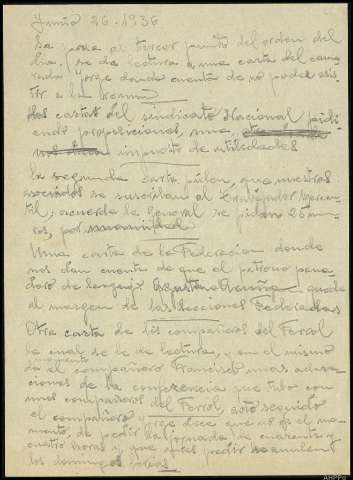 Junio 26-1936
Se pasa al tercer punto del orden del
dia, se da lectura a una carta del cama
rada Jorge donde cuenta de no poder asis
tir a la
Dos cartas del sindicato Nacional pidi
endo proposiciones, una
impuesto de utilidades
la segunda carta piden, que nuestros
asociados se suscriban al trabajador Mercan
til, acuerda la General se pidan 25
ros, por unanimidad
Una carta de la Federacion donde
nos dan cuenta de que el patrono pana
dero de queda
al margen de las secciones Federadas
Otra carta de los compañeros del Ferrol
la cual se le da lectura, y en el mismo
da el compañero Francisco unas
ciones de la conferencia que tubo con
unos compañeros del Ferrol, acto seguido
el compañero Jorge dice que no es el mo
mento, de pedir la jornada de cuarenta y
cuatro horas y que antes pedir se anulen
los domingos
AHPPo